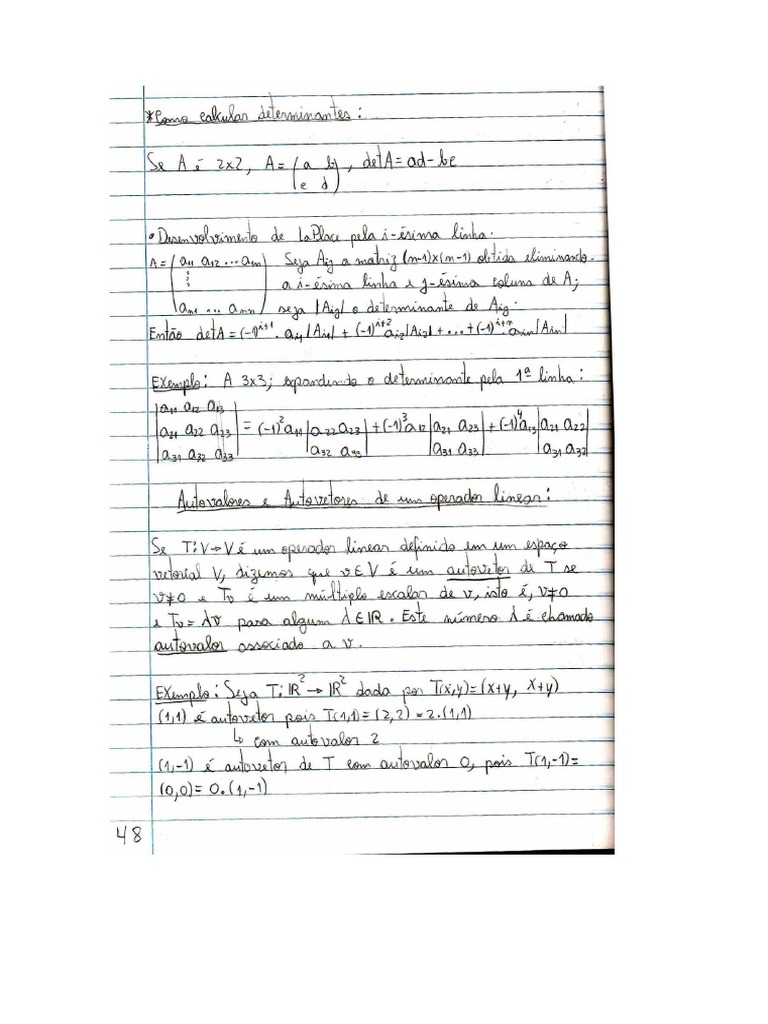 *Como calcular determinantes:
Se A é 2x2, A = (a b
c d), det A = ad - bc
• Desenvolvimento de LaPlace pela i-ésima linha.
A = (a₁₁ a₁₂ ... a₁ₙ   Seja Aᵢⱼ a matriz (n-1)x(n-1) obtida eliminando
⋮   a i-ésima linha e j-ésima coluna de A;
aₙ₁ ... aₙₙ)   seja |Aᵢⱼ| o determinante de Aᵢⱼ.
Então det A = (-1)ⁱ⁺¹ . aᵢ₁ |Aᵢ₁| + (-1)ⁱ⁺² aᵢ₂ |Aᵢ₂| + ... + (-1)ⁱ⁺ⁿ aᵢₙ |Aᵢₙ|
Exemplo: A 3x3; expandindo o determinante pela 1ª linha:
|a₁₁ a₁₂ a₁₃|
|a₂₁ a₂₂ a₂₃| = (-1)² a₁₁ |a₂₂ a₂₃| + (-1)³ a₁₂ |a₂₁ a₂₃| + (-1)⁴ a₁₃ |a₂₁ a₂₂|
|a₃₁ a₃₂ a₃₃| |a₃₂ a₃₃| |a₃₁ a₃₃| |a₃₁ a₃₂|
Autovalores e Autovetores de um operador linear:
Se T: V → V é um operador linear definido em um espaço
vetorial V, dizemos que v ∈ V é um autovetor de T se
v ≠ 0 e Tv é um múltiplo escalar de v, isto é, v ≠ 0
e Tv = λv para algum λ ∈ IR. Este número λ é chamado
autovalor associado a v.
Exemplo: Seja T: IR² → IR² dada por T(x,y) = (x+y, x+y)
(1,1) é autovetor pois T(1,1) = (2,2) = 2.(1,1)
↳ com autovalor 2
(1,-1) é autovetor de T com autovalor 0, pois T(1,-1) =
(0,0) = 0.(1,-1)
48